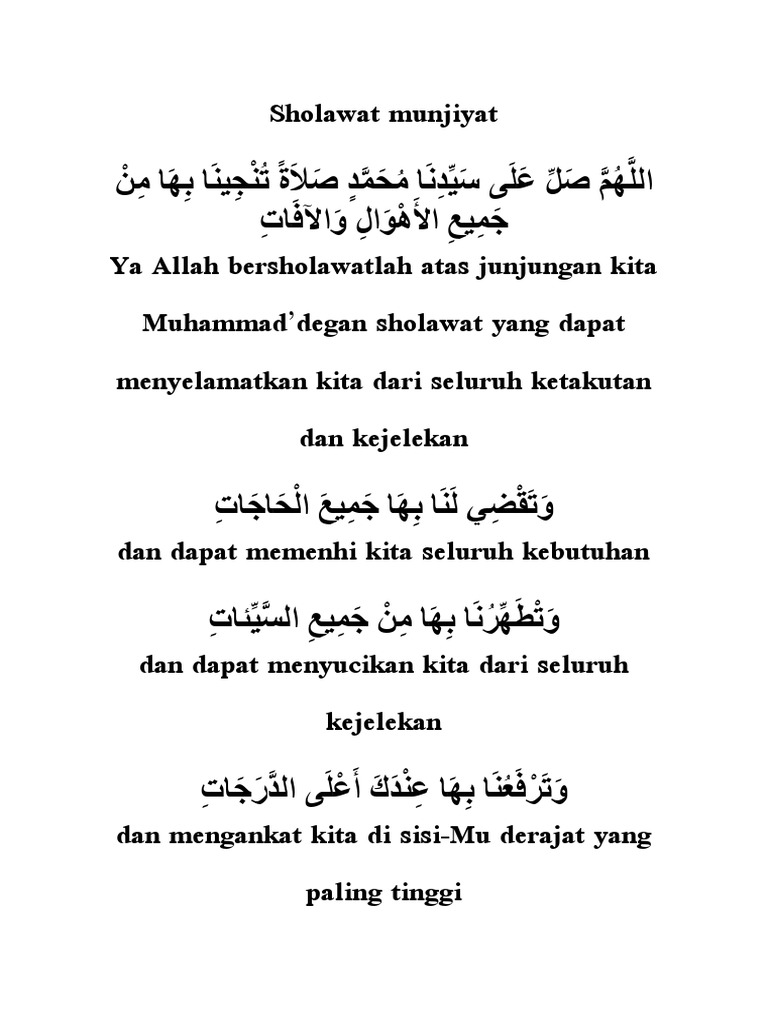 Sholawat munjiyat
اللَّهُمَّ صَلِّ عَلَى سَيِّدِنَا مُحَمَّدٍ صَلاَةً تُنْجِينَا بِهَا مِنْ
جَمِيعِ الأَهْوَالِ وَالآفَاتِ
Ya Allah bersholawatlah atas junjungan kita
Muhammad’degan sholawat yang dapat
menyelamatkan kita dari seluruh ketakutan
dan kejelekan
وَتَقْضِي لَنَا بِهَا جَمِيعَ الْحَاجَاتِ
dan dapat memenhi kita seluruh kebutuhan
وَتْطَهِّرُنَا بِهَا مِنْ جَمِيعِ السَّيِّئاتِ
dan dapat menyucikan kita dari seluruh
kejelekan
وَتَرْفَعُنَا بِهَا عِنْدَكَ أَعْلَى الدَّرَجَاتِ
dan mengankat kita di sisi-Mu derajat yang
paling tinggi